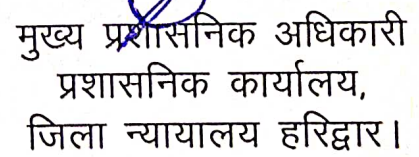 मुख्य प्रशासनिक अधिकारी
प्रशासनिक कार्यालय,
जिला न्यायालय हरिद्वार।